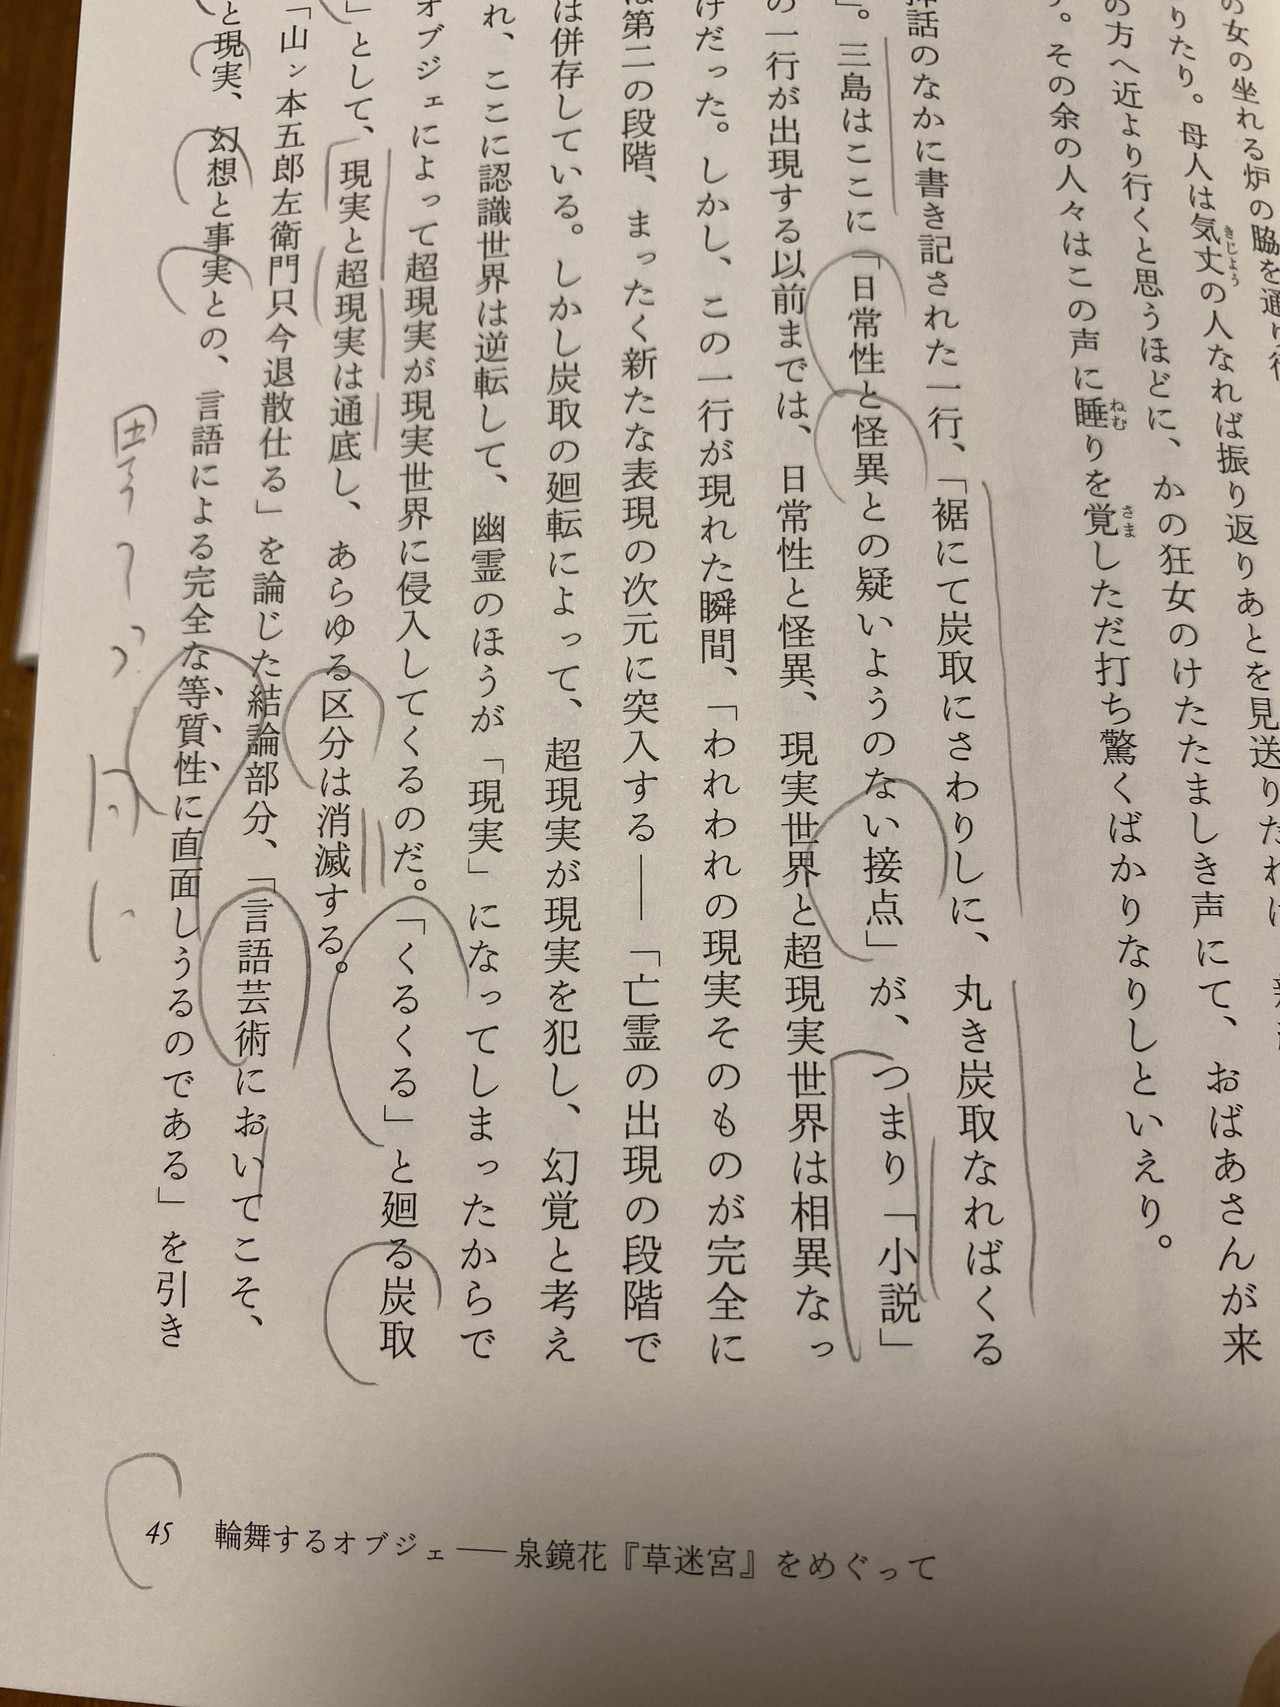 の女の坐れる炉の脇を通り行
りたり。母人は気丈の人なれば振り返りあとを見送りたれば、
きじょう
の方へ近より行くと思うほどに、かの狂女のけたたましき声にて、おばあさんが来
。その余の人々はこの声に睡りを覚しただ打ち驚くばかりなりしといえり。
ねむ
さま
挿話のなかに書き記された一行、「裾にて炭取にさわりしに、丸き炭取なればくる
」。三島はここに「日常性と怪異との疑いようのない接点」が、つまり「小説」
の一行が出現する以前までは、日常性と怪異、現実世界と超現実世界は相異なっ
けだった。しかし、この一行が現れた瞬間、「われわれの現実そのものが完全に
は第二の段階、まったく新たな表現の次元に突入する――「亡霊の出現の段階で
は併存している。しかし炭取の廻転によって、超現実が現実を犯し、幻覚と考え
れ、ここに認識世界は逆転して、幽霊のほうが「現実」になってしまったからで
オブジェによって超現実が現実世界に侵入してくるのだ。「くるくる」と廻る炭取
」として、現実と超現実は通底し、あらゆる区分は消滅する。
「山ン本五郎左衛門只今退散仕る」を論じた結論部分、「言語芸術においてこそ、
と現実、幻想と事実との、言語による完全な等質性に直面しうるのである」を引き
45 輪舞するオブジェ――泉鏡花『草迷宮』をめぐって